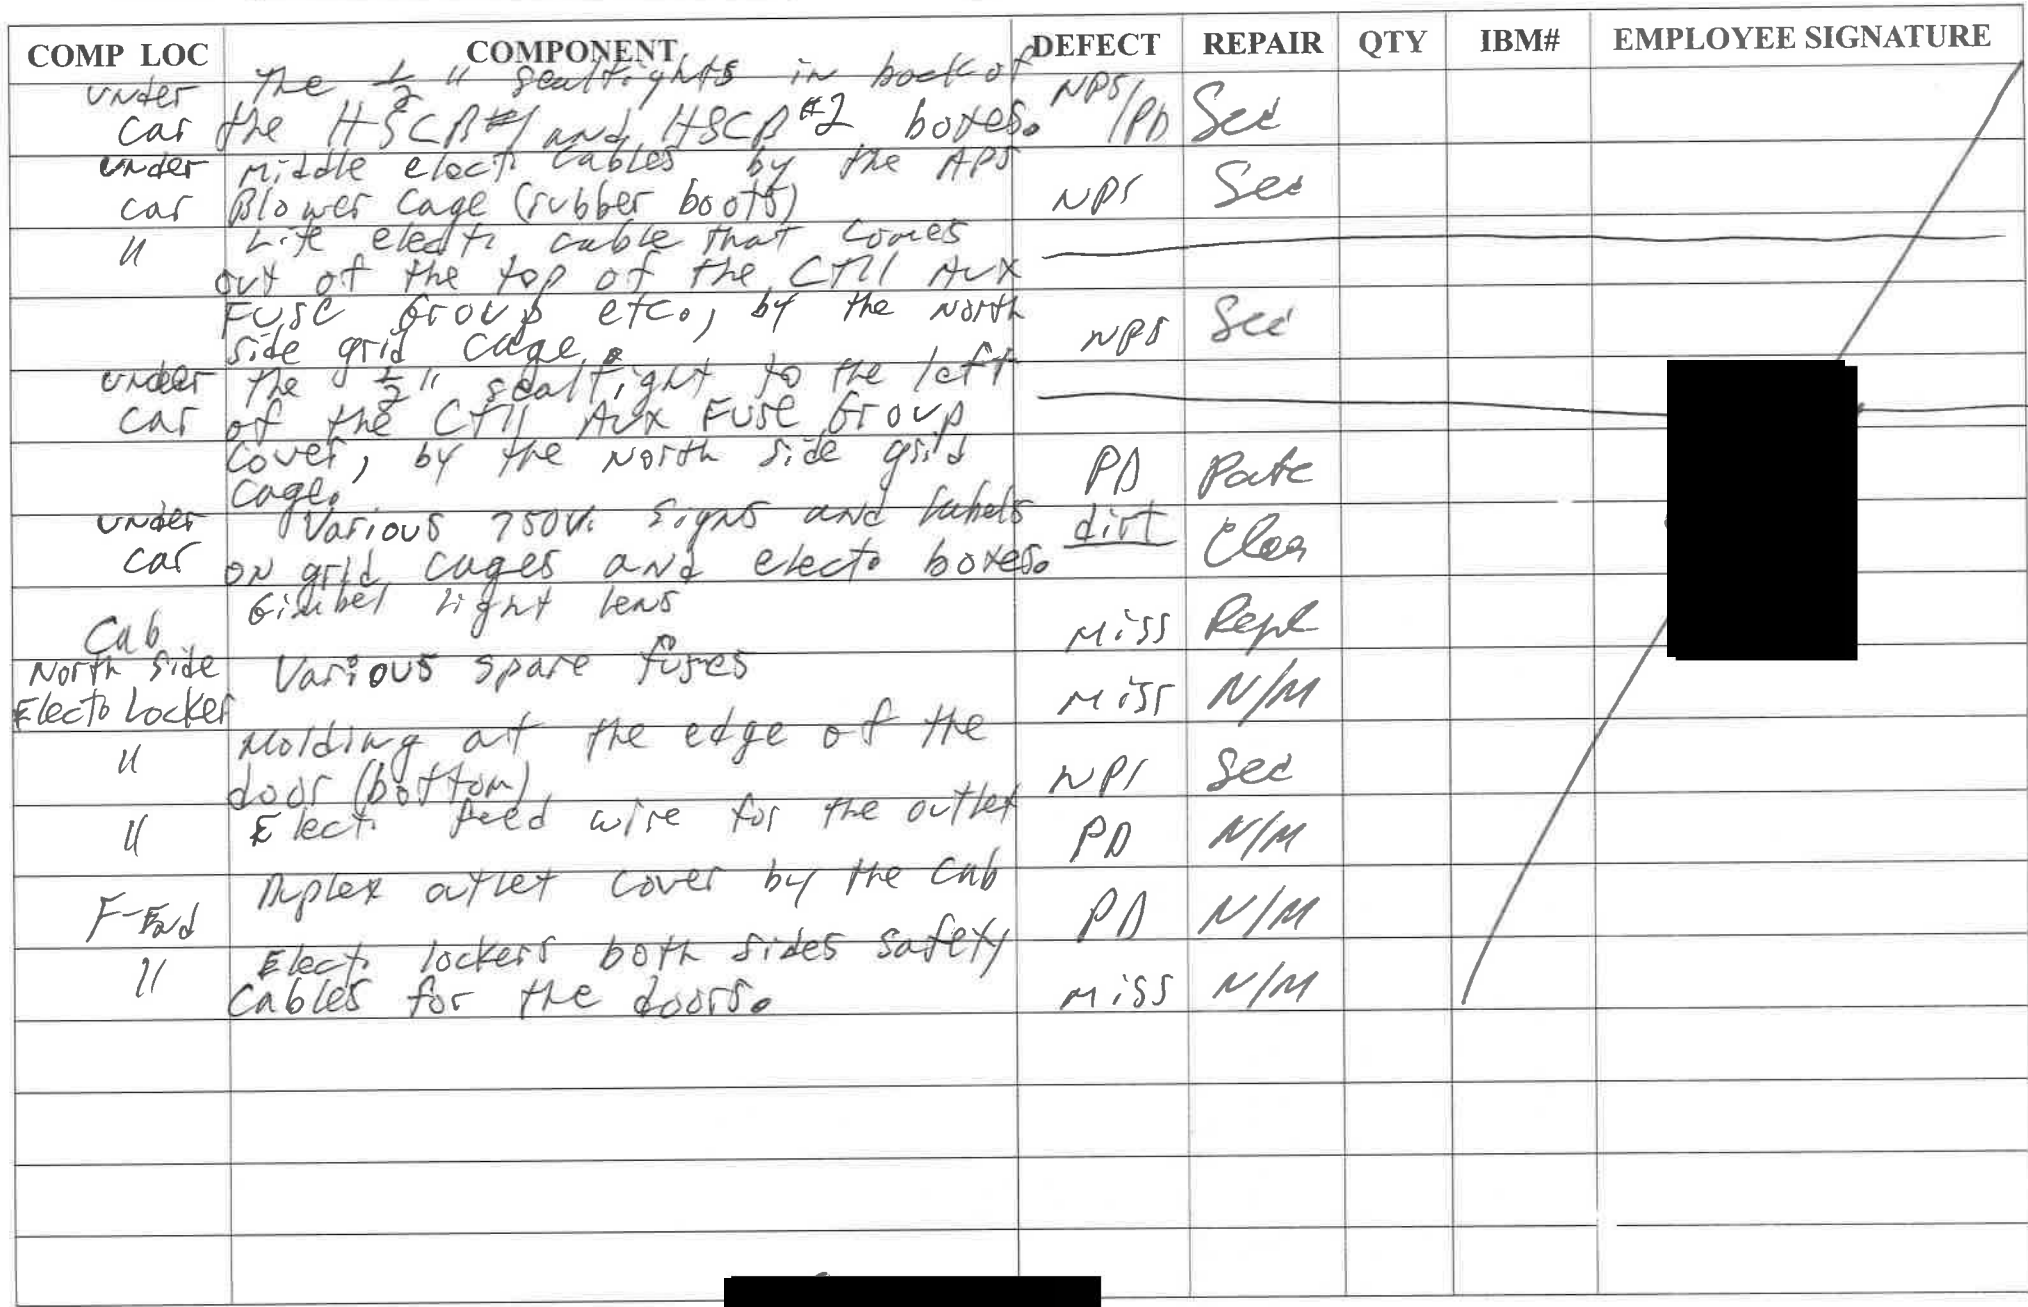 COMP LOC COMPONENT DEFECT REPAIR QTY IBM# EMPLOYEE SIGNATURE
under The 1/2" sealtights in back of NPS
car the HSCB#1 and HSCB#2 boxes. /PD Sec
under Middle elect. cables by the APS
car Blower Cage (rubber boots) NPS Sec
" elect. cable that comes
out of the top of the CTII Aux
Fuse Group etc., by the North
side grid cage. NPS Sec
under the 1/2" sealtight to the left
car of the CTII Aux Fuse Group
cover, by the North side grid PD
cage.
under Various 750V. signs and labels dirt
car on grid cages and elect. boxes. Clea
Cab Gimbel Light lens Miss Repl
North side Various spare fuses Miss N/M
Elect. Locker
" Molding at the edge of the
door (bottom) NPS Sec
" Elect. feed wire for the outlet PD N/M
F-End Duplex outlet cover by the Cab PD N/M
" Elect. lockers both sides safety
cables for the doors. Miss N/M